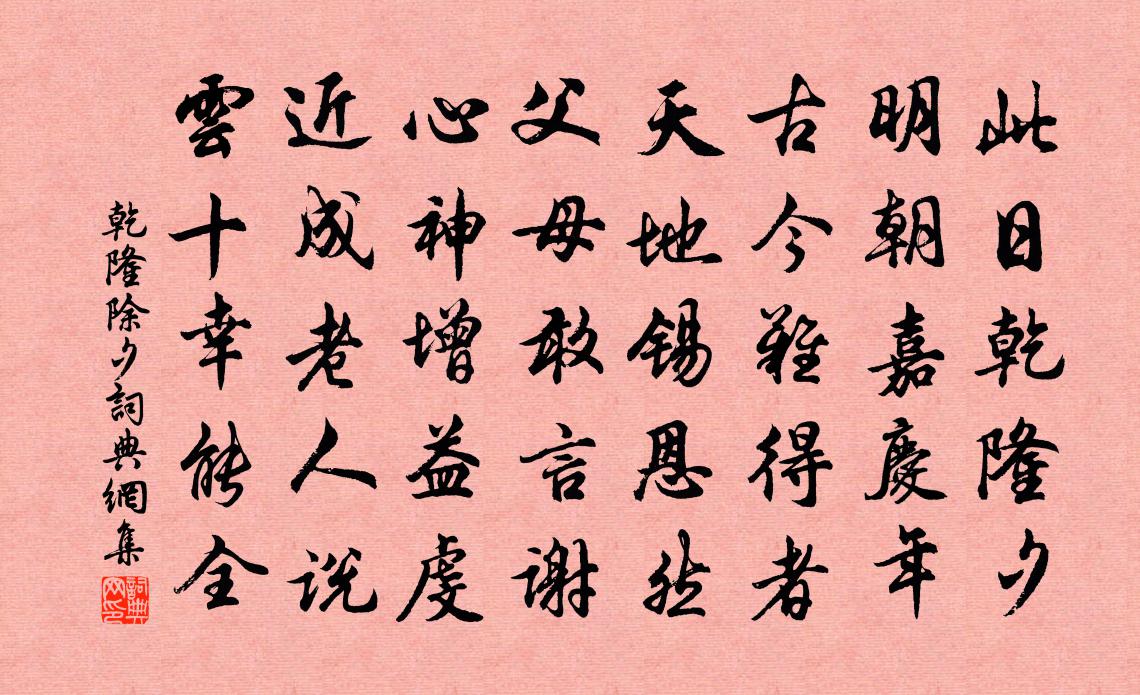 此日乾隆夕
明朝嘉慶年
古今難得者
天地錫恩然
父母敢言謝
心神增益虔
近成老人說
雲十幸能全
乾隆除夕詞典網集
詞典网印